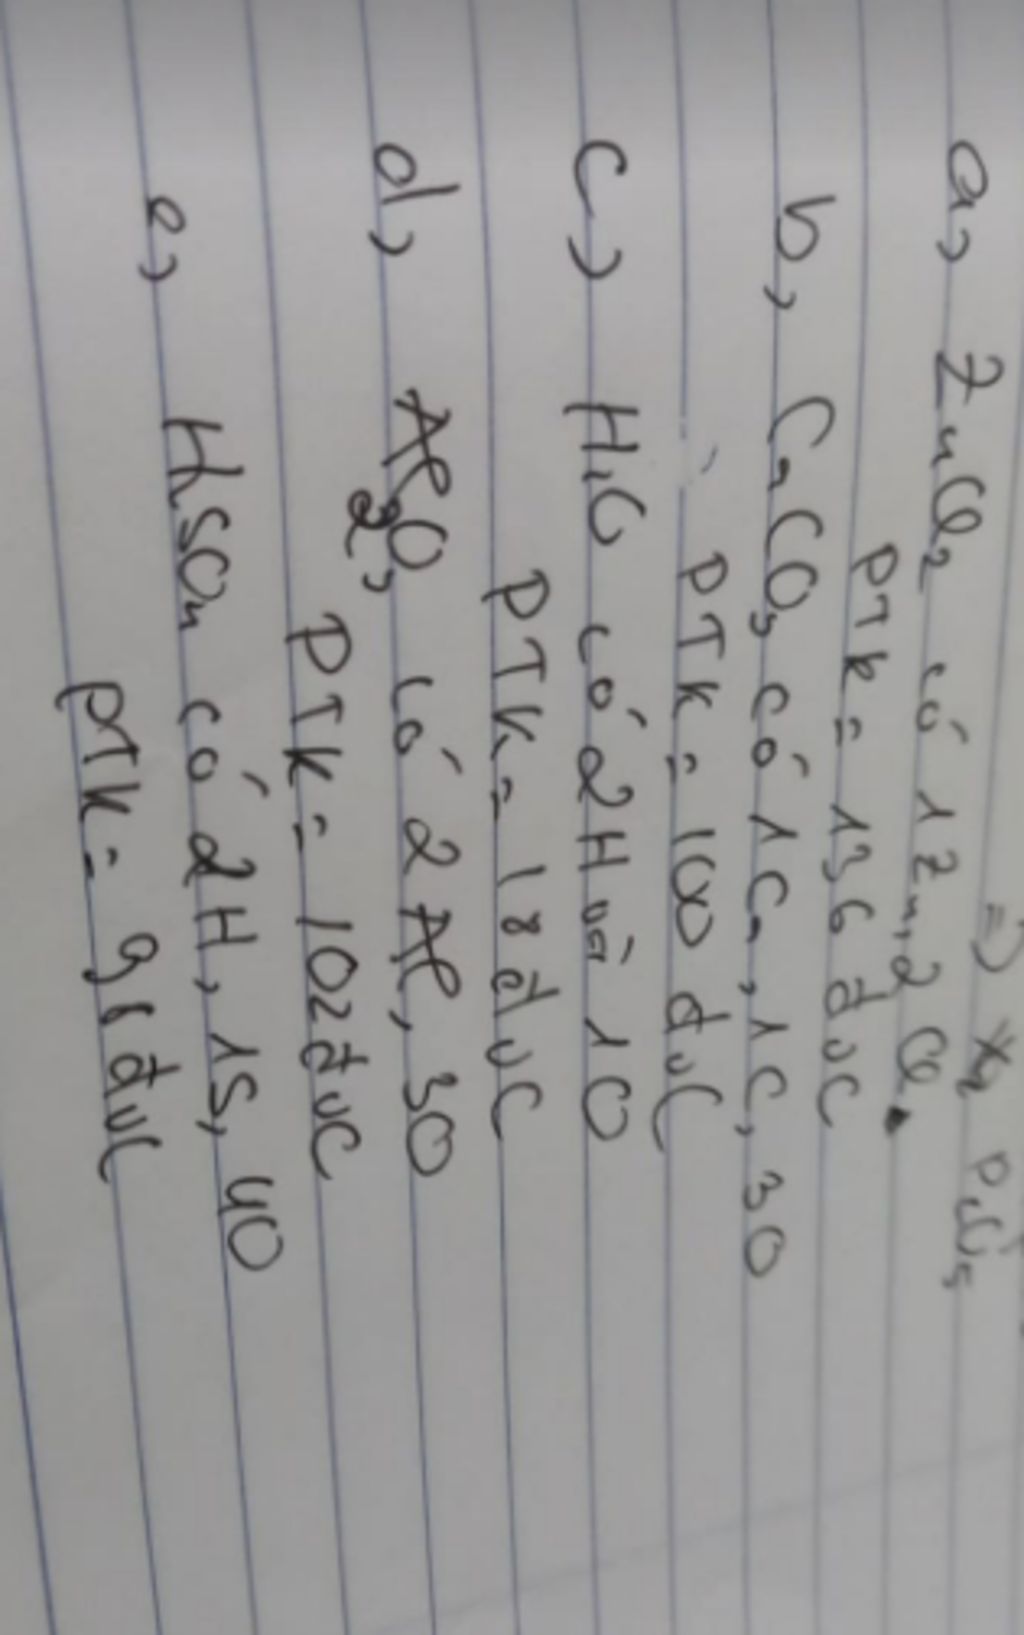 => x2 PCl5
a, ZnCl2 có 1Zn, 2Cl.
PTK = 136 đvC
b, CaCO3 có 1Ca, 1C, 3O
PTK = 100 đvC
c) H2O có 2H và 1O
PTK = 18 đvC
d, Al2O3 có 2Al, 3O
PTK = 102 đvC
e, H2SO4 có 2H, 1S, 4O
PTK = 98 đvC